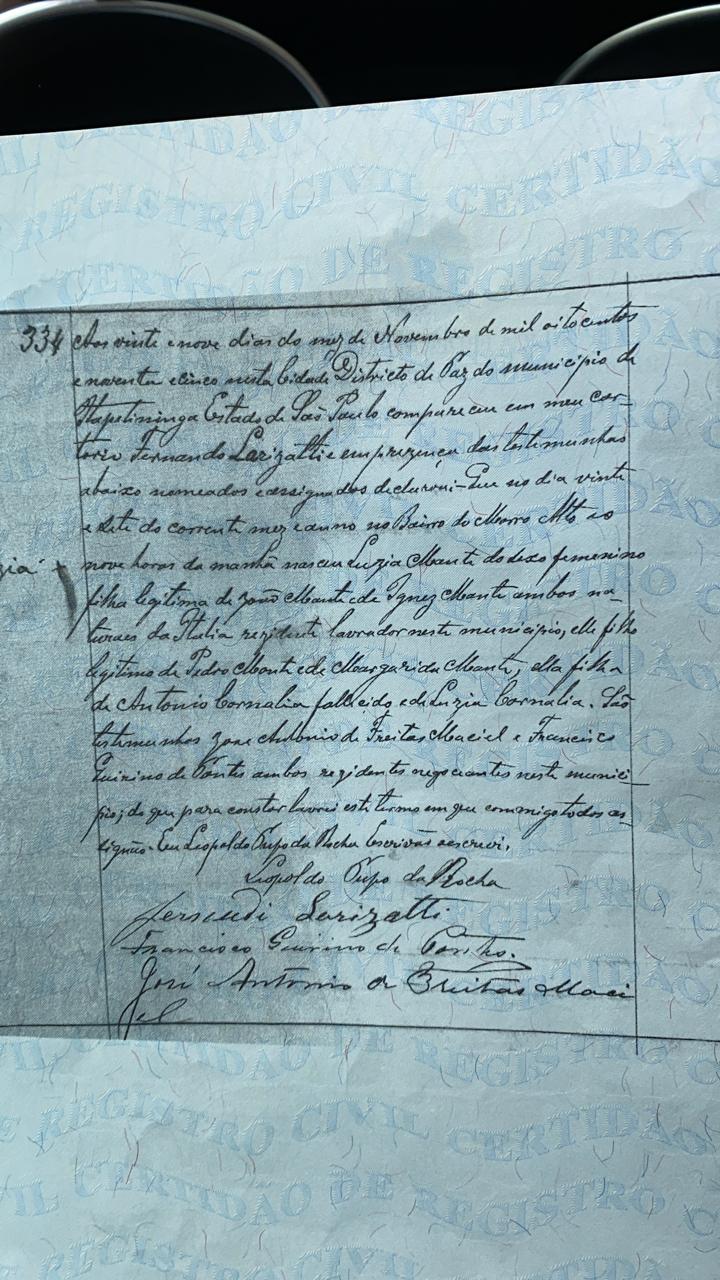 334 Aos vinte e nove dias do mez de Novembro de mil oitocentos
e noventa e cinco nesta Cidade Districto de Paz do municipio de
Itapetininga Estado de São Paulo compareceu em meu car-
torio Fernando Larizatti e em prezença das testemunhas
abaixo nomeados e assignados declarou-Que no dia vinte
e sete do corrente mez e anno no Bairro do Morro Alto as
nove horas da manhã nasceu Luzia Mante do sexo femenino
filha legitima de João Mante e de Ignez Mante ambos na-
turaes da Italia rezidente lavrador neste municipio, elle filho
legitimo de Pedro Mante e de Margarida Mante, ella filha
de Antonio Cornalia fallecido e de Luzia Cornalia. São
testemunhas Jose Antonio de Freitas Maciel e Francisco
Guirino de Pontes ambos rezidentes negociantes neste munici-
pio; do que para constar lavrei este termo em que commigo todos as-
signão. Eu Leopoldo Pupo da Rocha Escrivão escrevi.
Leopoldo Pupo da Rocha
Larizatti
Francisco Guirino de Pontes.
José Antonio de Freitas Maci
el
CERTIDÃO DE REGISTRO CIVIL